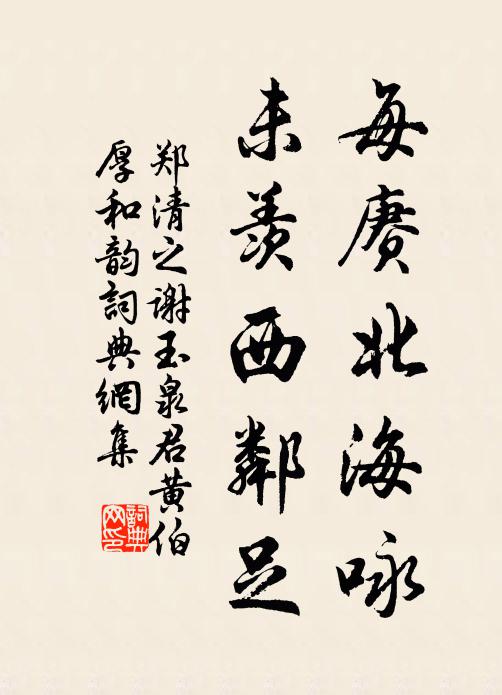 每赓北海咏
未羡西鄰足
郑清之谢玉泉君黄伯
厚和韵詞典網集
詞典网印